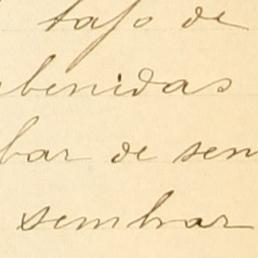 tajo de
benidas
bar de sen
sembrar